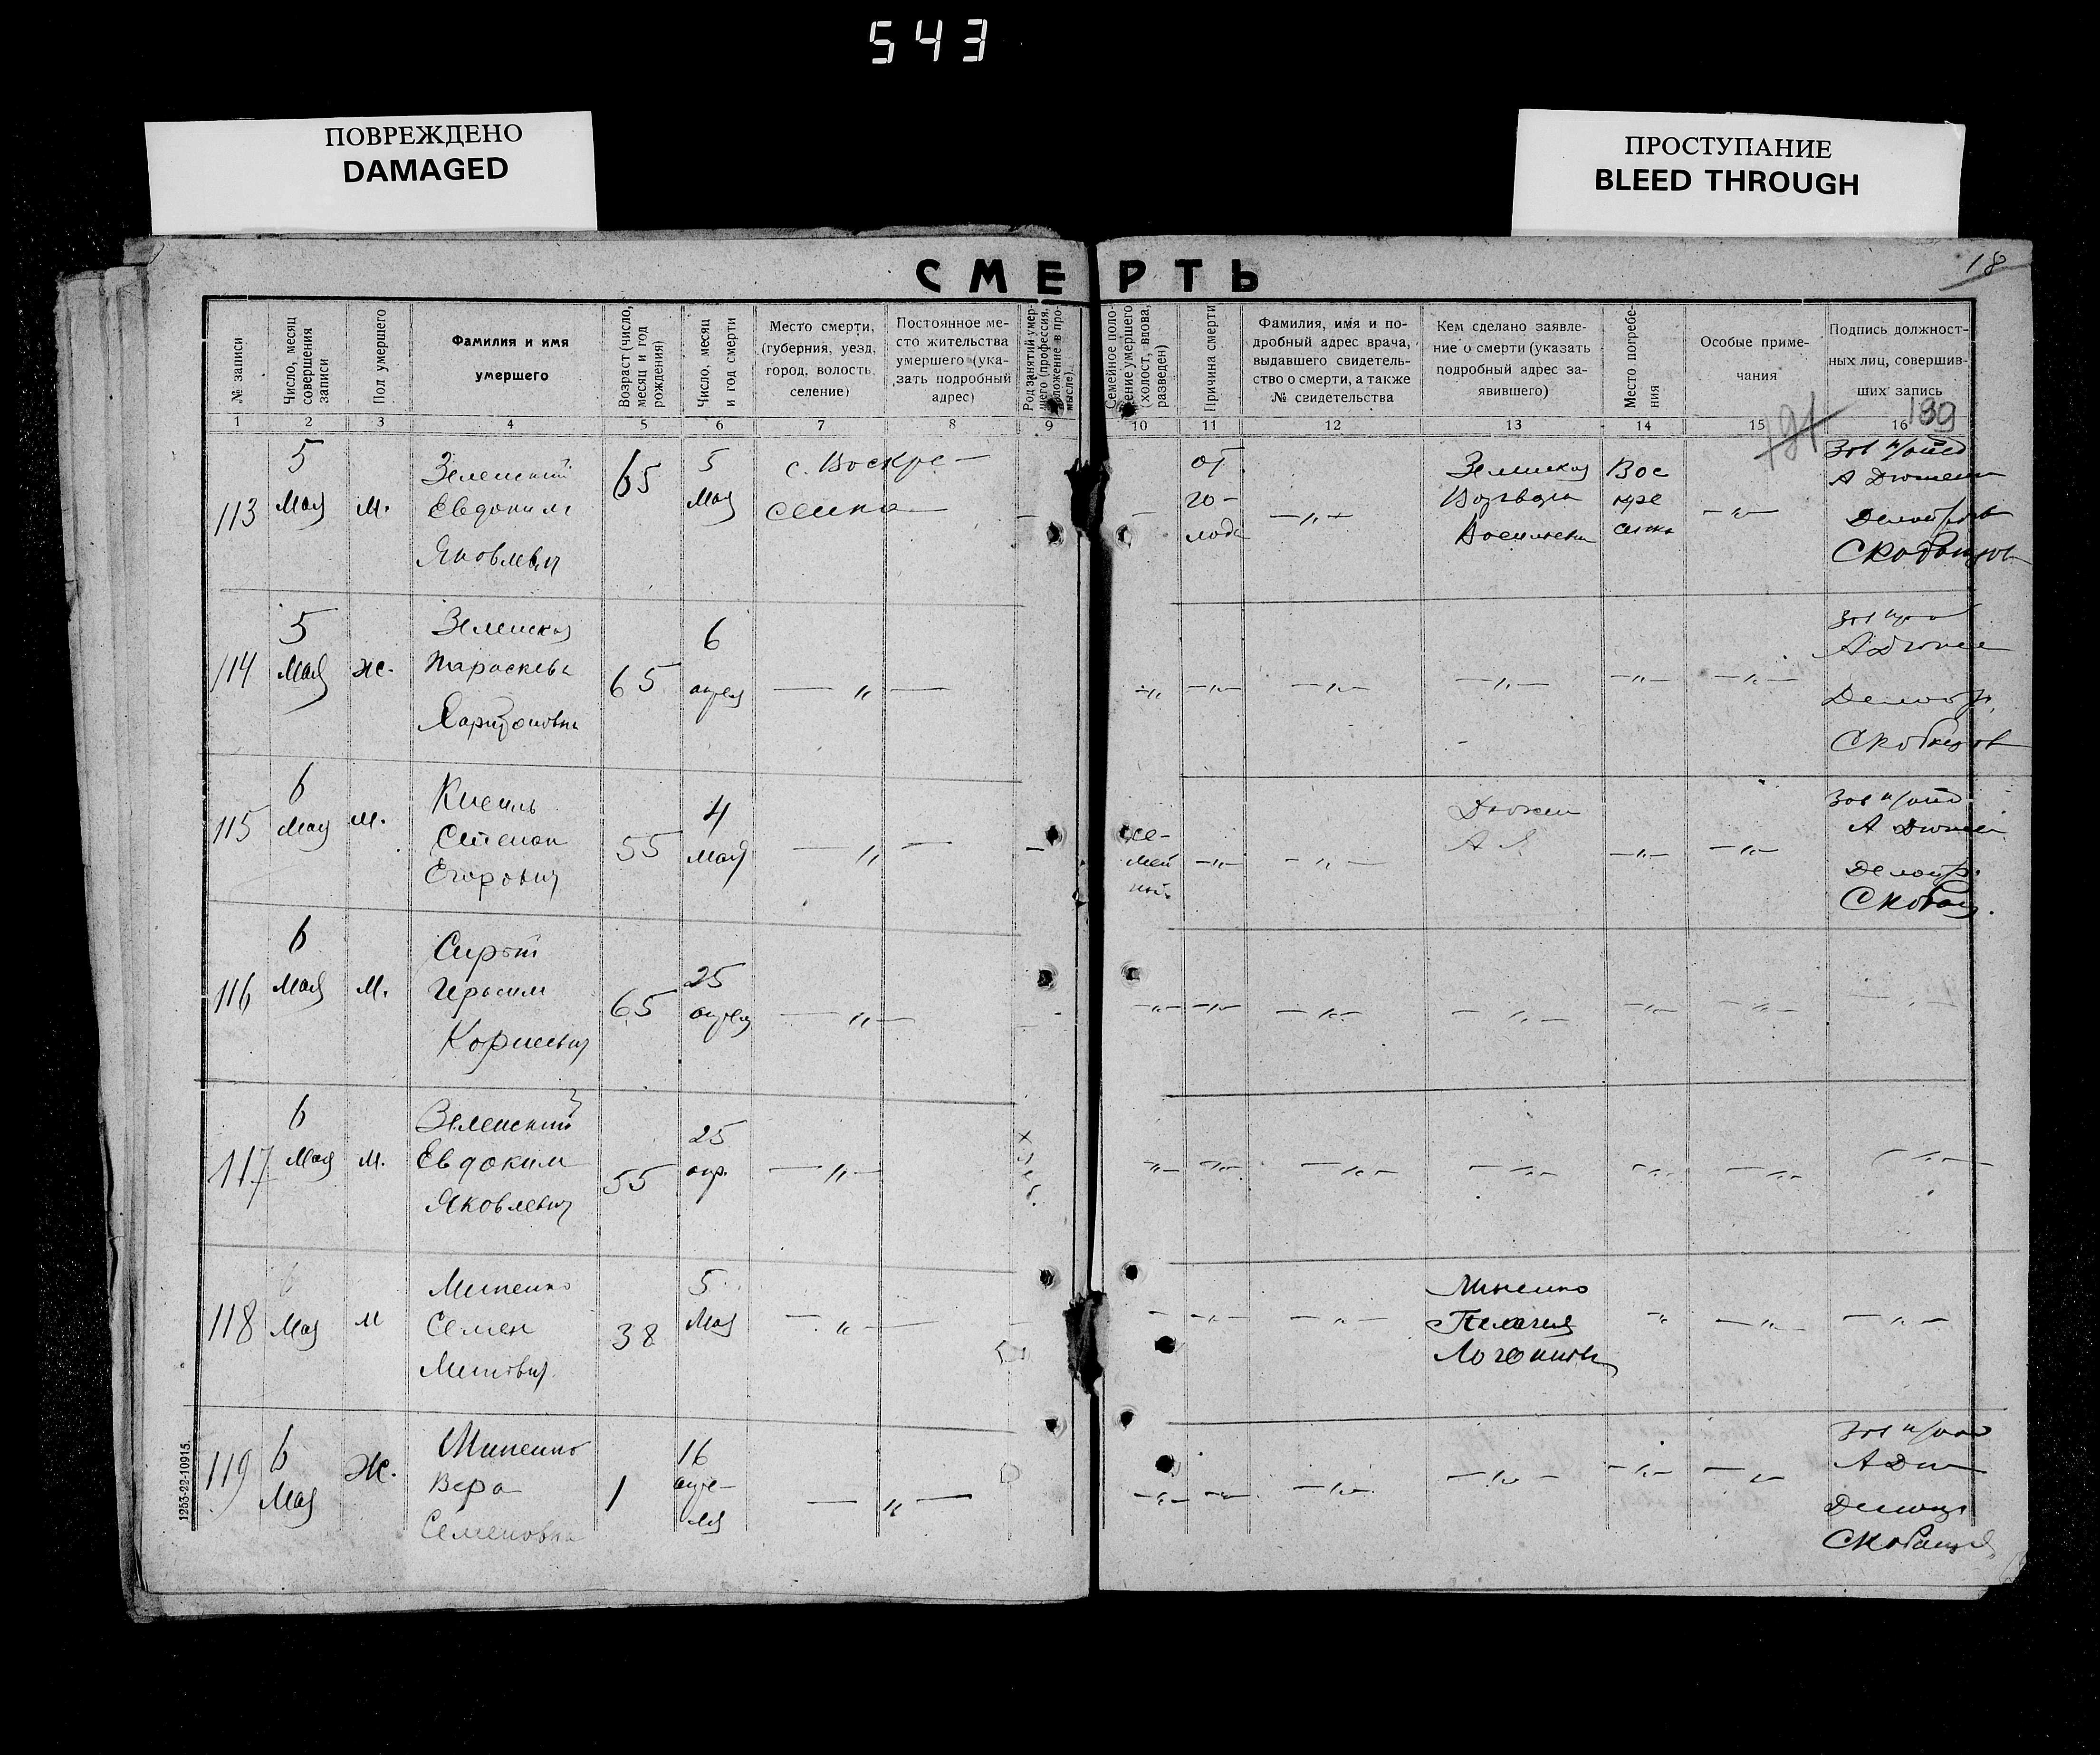 543
ПОВРЕЖДЕНО
DAMAGED
ПРОСТУПАНИЕ
BLEED THROUGH
СМЕРТЬ
18
№ записи
Число, месяц
совершения
записи
Пол умершего
Фамилия и имя
умершего
Возраст (число,
месяц и год
рождения)
Число, месяц
и год смерти
Место смерти,
(губерния, уезд,
город, волость,
селение)
Постоянное ме-
сто жительства
умершего (ука-
зать подробный
адрес)
Род занятий умер-
шего (профессия,
положение в про-
мысле).
Семейное поло-
жение умершего
(холост, вдова,
разведен)
Причина смерти
Фамилия, имя и по-
дробный адрес врача,
выдавшего свидетель-
ство о смерти, а также
№ свидетельства
Кем сделано заявле-
ние о смерти (указать
подробный адрес за-
явившего)
Место погребе-
ния
Особые приме-
чания
Подпись должност-
ных лиц, совершив-
ших запись
1 2 3 4 5 6 7 8 9 10 11 12 13 14 15 16
191
139
113
5
Мая
м.
Зеленский
Евдоким
Яковлевич
65
5
Мая
с. Воскре-
сенка
—
—
от
го-
лода
— „ —
Зеленская
Васильевна
Вос
кре
сенка
— „ —
А Дюмен
Скобанцов
114
5
Мая
ж.
Зеленская
Параскева
Харитоновна
65
6
апреля
— „ —
— „
— „ —
— „ —
— „ —
— „ —
— „ —
А Дюмен
Скобанцов
115
6
Мая
м.
Степан
Егорович
55
4
мая
— „ —
—
се-
мей
ный.
— „ —
— „ —
Дюмен
А Я
— „ —
— „ —
А Дюмен
Скобанц.
116
6
Мая
м.
Герасим
Корнеевич
65
25
апреля
— „ —
— „ —
— „ —
— „ —
— „ —
— „ —
— „ —
117
6
Мая
м.
Зеленский
Евдоким
Яковлевич
55
25
апр.
— „ —
— „ —
— „ —
— „ —
— „ —
— „ —
— „ —
— „ —
118
6
Мая
м
Миненко
Семен
38
5
Мая
— „ —
— „ —
— „ —
Миненко
Пелагия
„
— „ —
— „ —
119
6
Мая
Ж.
Миненко
Вера
Семеновна
1
16
апре-
ля
— „ —
— „ —
— „ —
— „ —
— „ —
— „ —
— „ —
А Дю
Скобанцов
1253-22-10915.